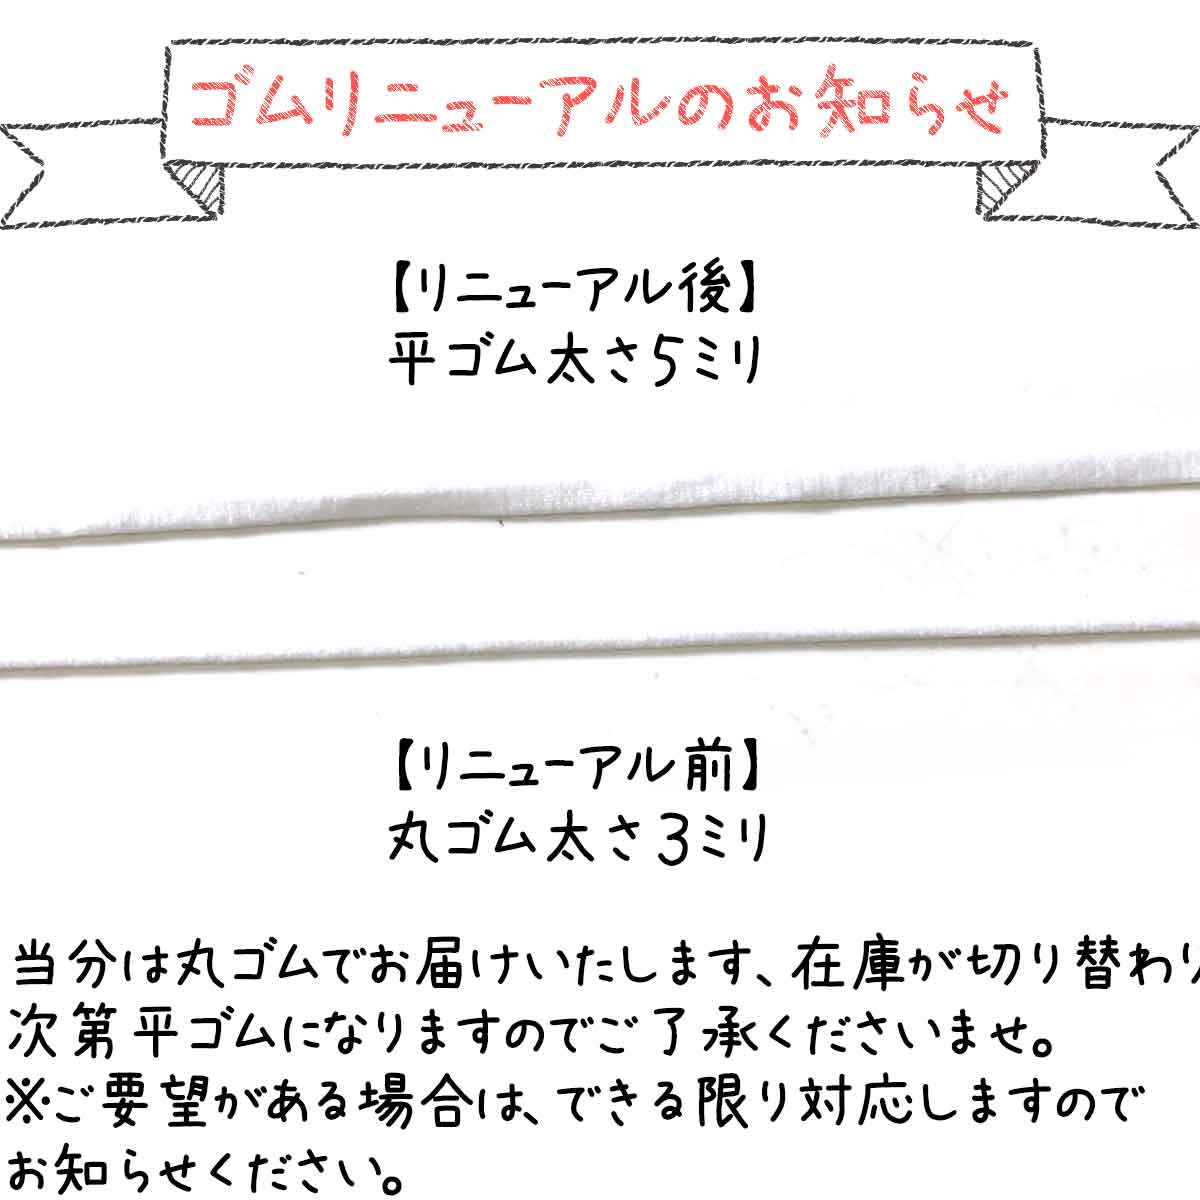 ゴムリニューアルのお知らせ
【リニューアル後】
平ゴム太さ5ミリ
【リニューアル前】
丸ゴム太さ3ミリ
当分は丸ゴムでお届けいたします、在庫が切り替わり
次第平ゴムになりますのでご了承くださいませ。
※ご要望がある場合は、できる限り対応しますので
お知らせください。